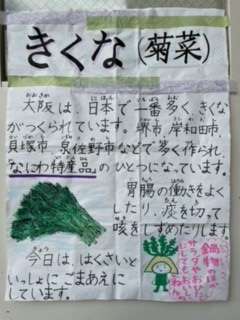 きくな(菊菜)
大阪は、日本で一番多く、きくな
がつくられています。堺市、岸和田市、
貝塚市、泉佐野市などで多く作られ
「なにわ特産品」のひとつになっています。
胃腸の働きをよく
したり、痰を切って
咳をしずめたりします。
今日は、はくさいと
いっしょに ごまあえに
しています。
鍋物のほか
サラダやおひたし
にしてもおいしい